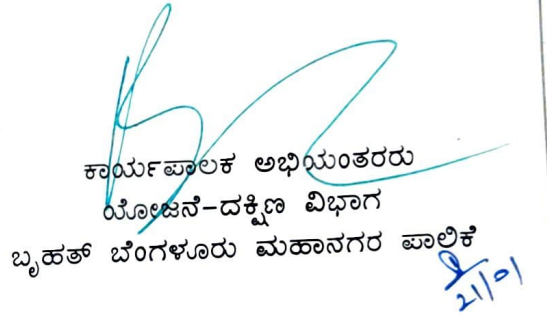 ಕಾರ್ಯಪಾಲಕ ಅಭಿಯಂತರರು
ಯೋಜನೆ-ದಕ್ಷಿಣ ವಿಭಾಗ
ಬೃಹತ್ ಬೆಂಗಳೂರು ಮಹಾನಗರ ಪಾಲಿಕೆ
21/01